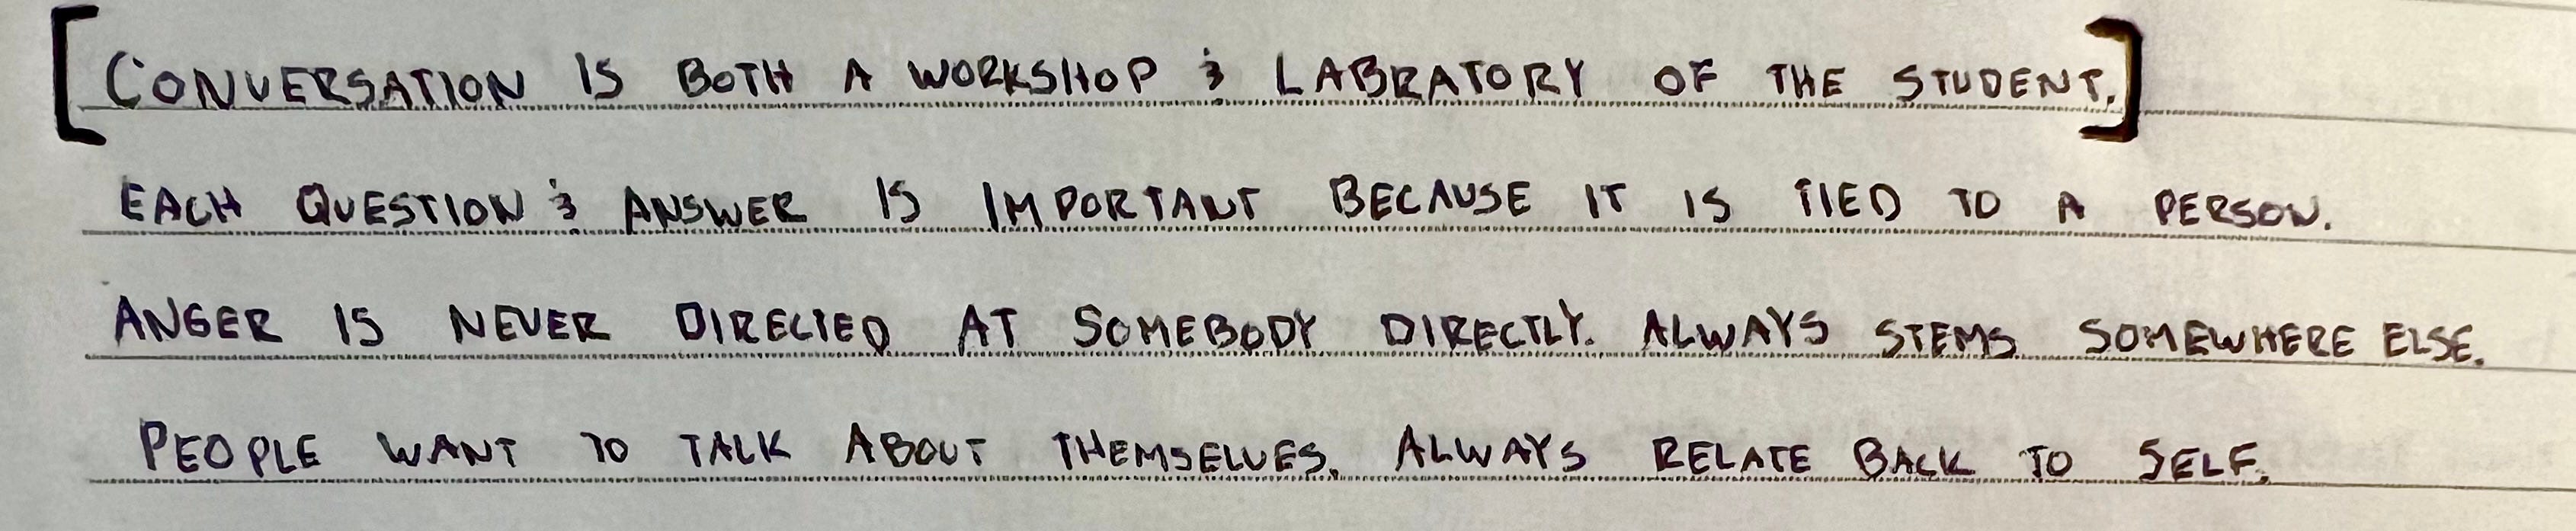 [CONVERSATION IS BOTH A WORKSHOP & LABRATORY OF THE STUDENT.]
EACH QUESTION & ANSWER IS IMPORTANT BECAUSE IT IS TIED TO A PERSON.
ANGER IS NEVER DIRECTED AT SOMEBODY DIRECTLY. ALWAYS STEMS SOMEWHERE ELSE.
PEOPLE WANT TO TALK ABOUT THEMSELVES. ALWAYS RELATE BACK TO SELF.